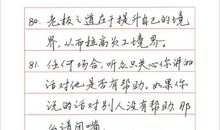 80. 老板之道在于提升自己的境
界，从而拉高员工境界。
81. 任何场合，听众只关心你讲的
话对他是否有帮助。如果你
说的话对别人没有帮助，那
么请闭嘴。